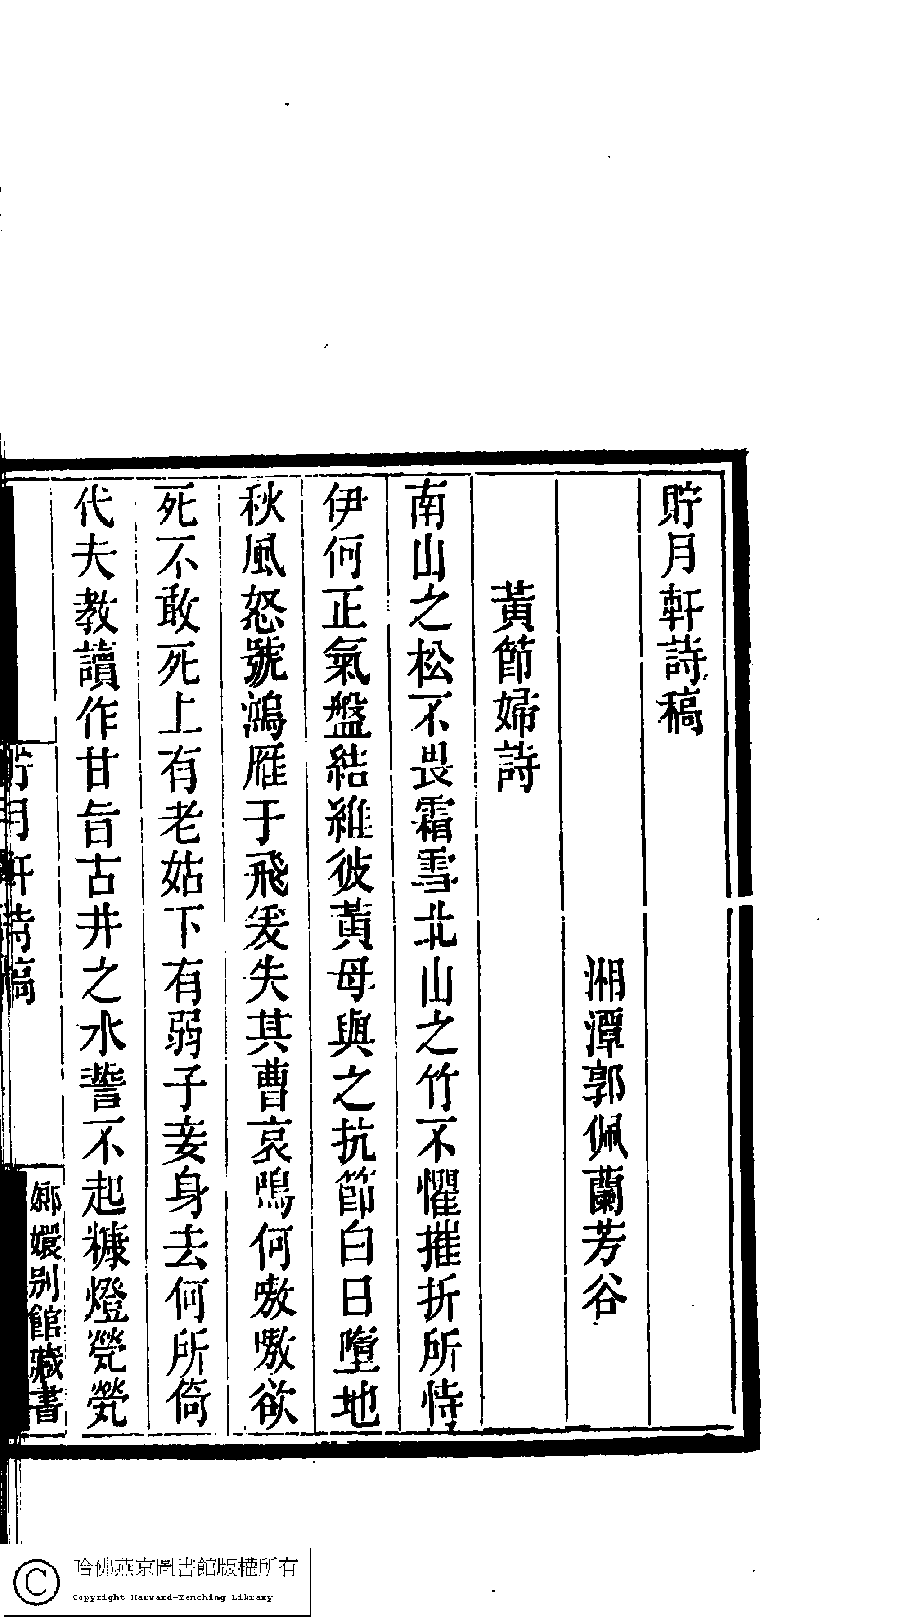 貯月軒詩稿
湘潭郭佩蘭芳谷
黃節婦詩
南山之松不畏霜雪北山之竹不懼摧折所恃
伊何正氣盤結維彼黃母與之抗節白日墮地
秋風怒號鴻雁于飛爰失其曹哀鳴何嗷嗷欲
死不敢死上有老姑下有弱子妾身去何所倚
代夫教讀作甘旨古井之水誓不起糠燈煢煢
貯月軒詩稿
嫏嬛別館藏書
哈佛燕京圖書館版權所有
Copyright Harvard-Yenching Library